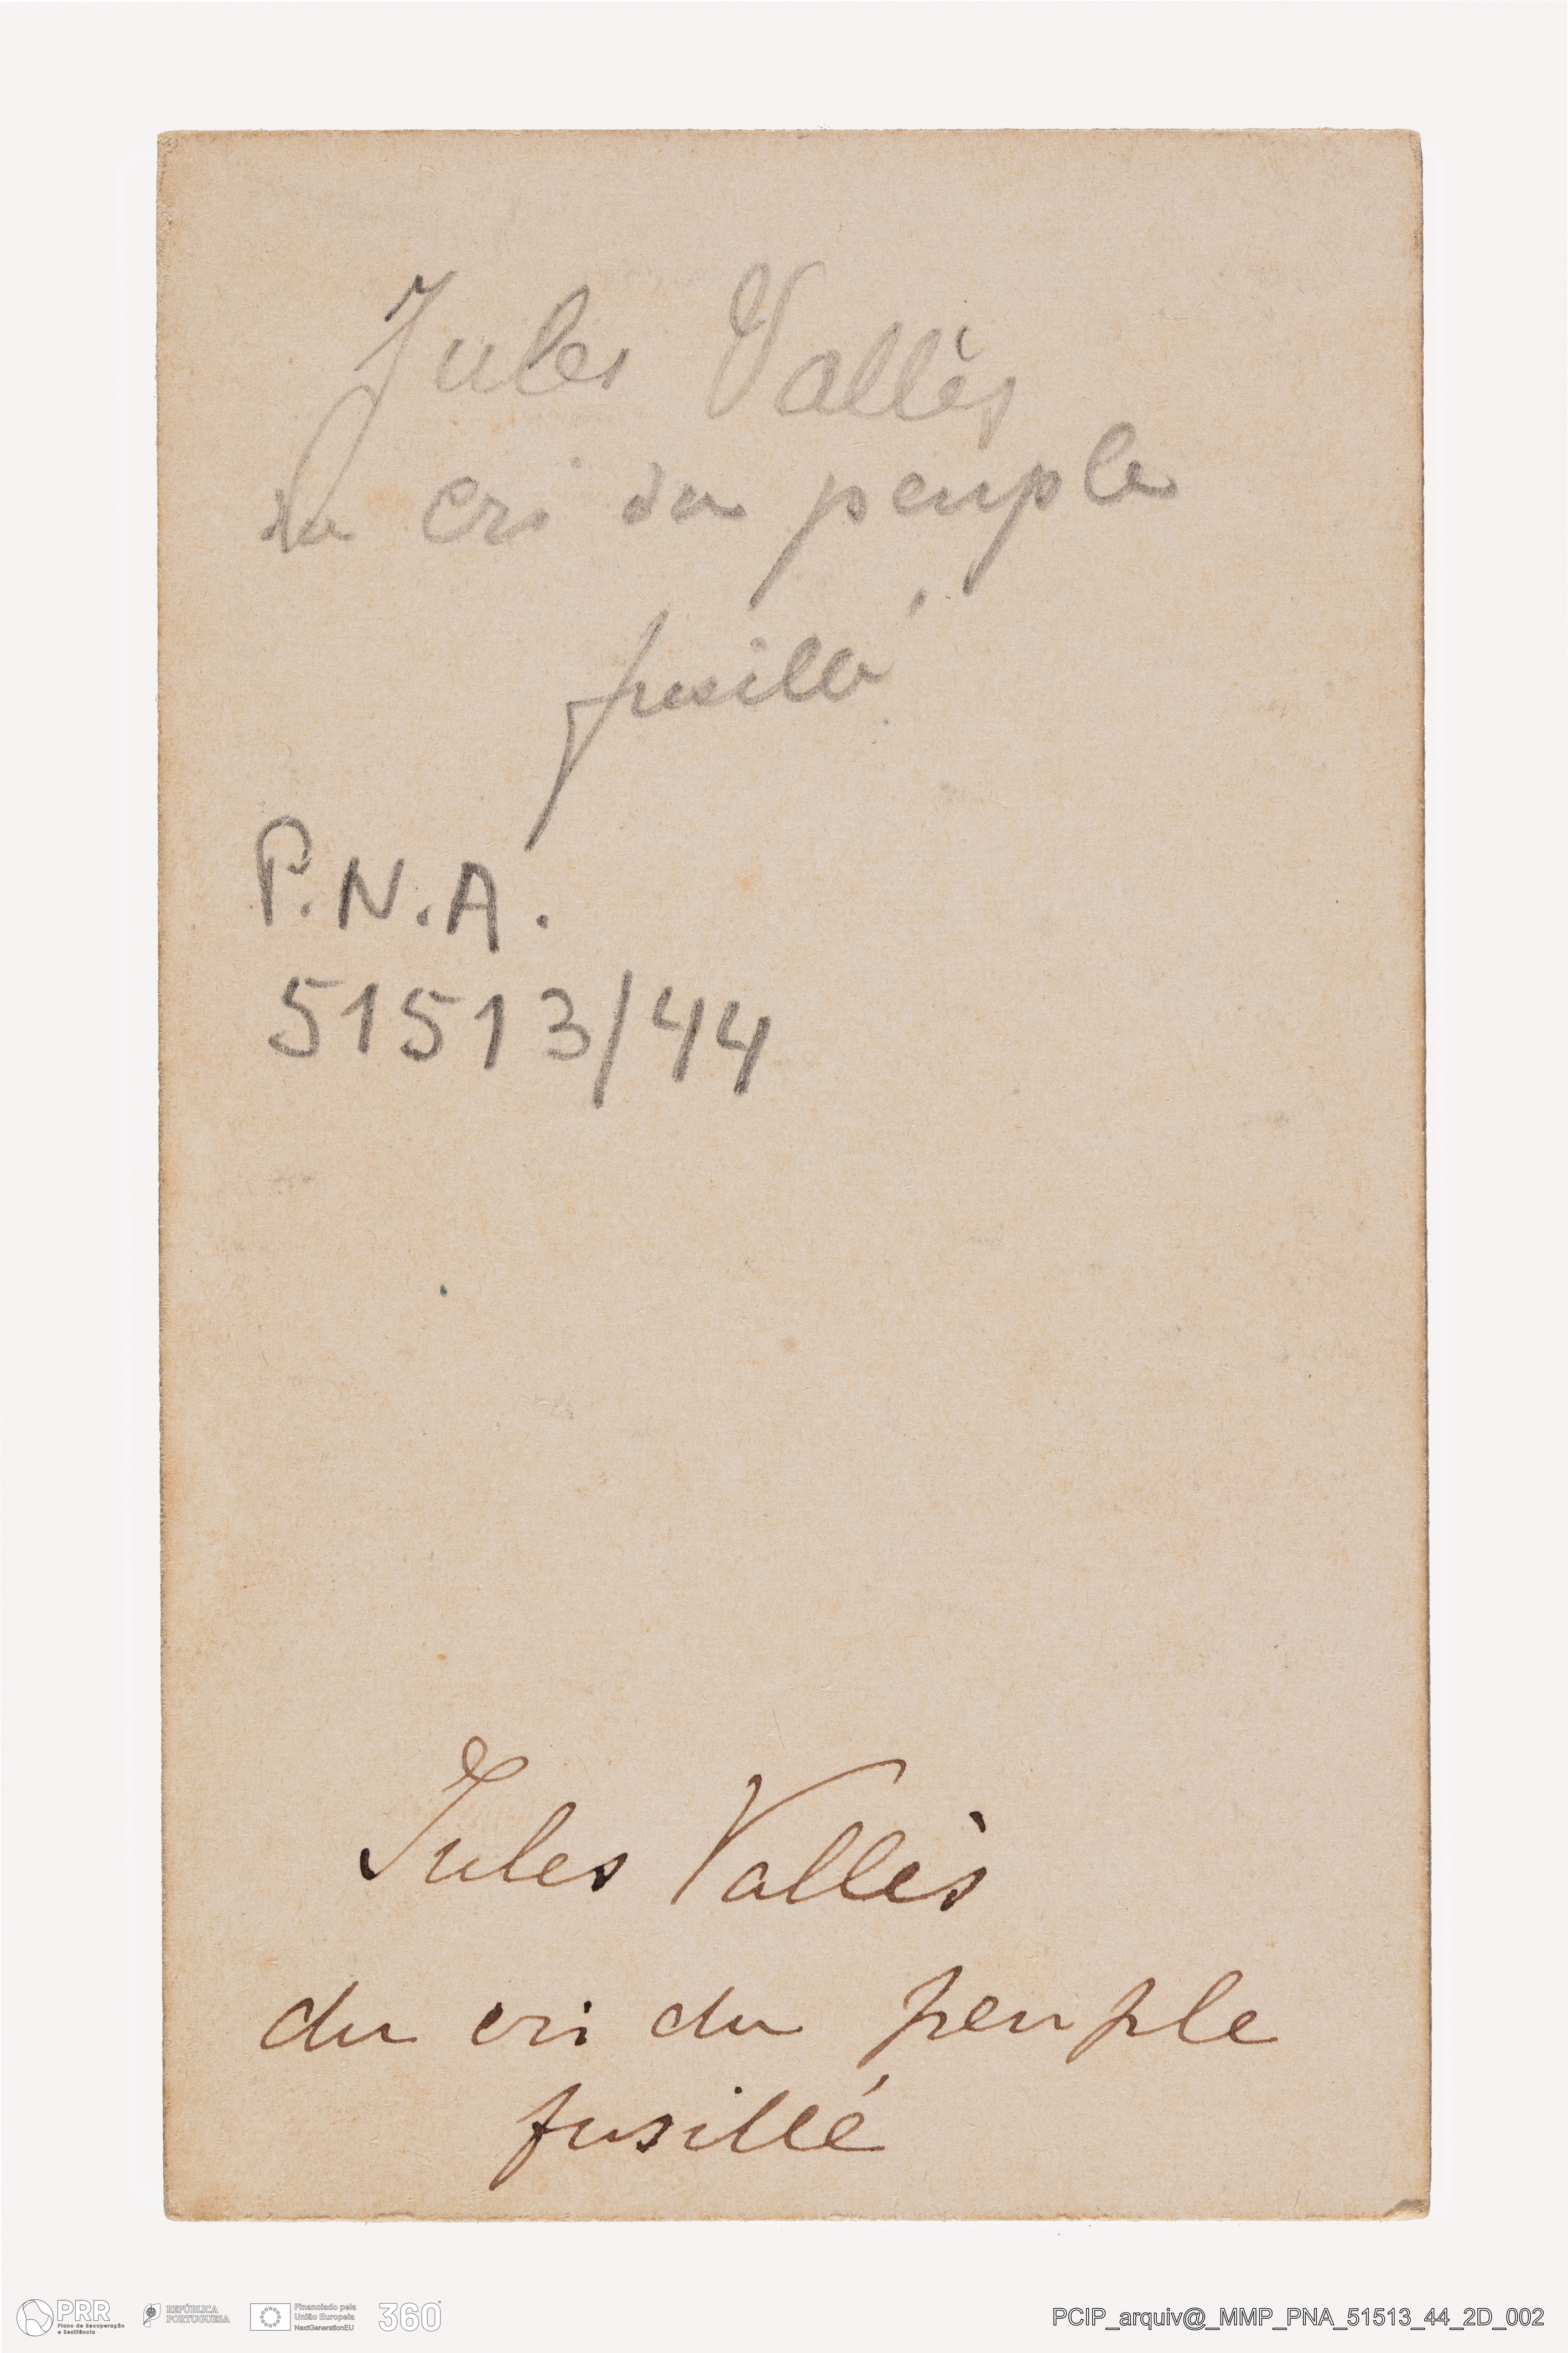 Jules Vallès
du cri du peuple
fusillé
P.N.A.
51513/44
Jules Vallès
du cri du peuple
fusillé
PRR
Plano de Recuperação
e Resiliência
REPÚBLICA
PORTUGUESA
Financiado pela
União Europeia
NextGenerationEU
360°
PCIP_arquiv@_MMP_PNA_51513_44_2D_002